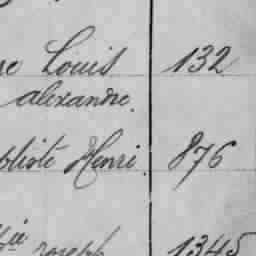 re Louis 132
alexandre.
btiste Henri. 876
joseph 1345